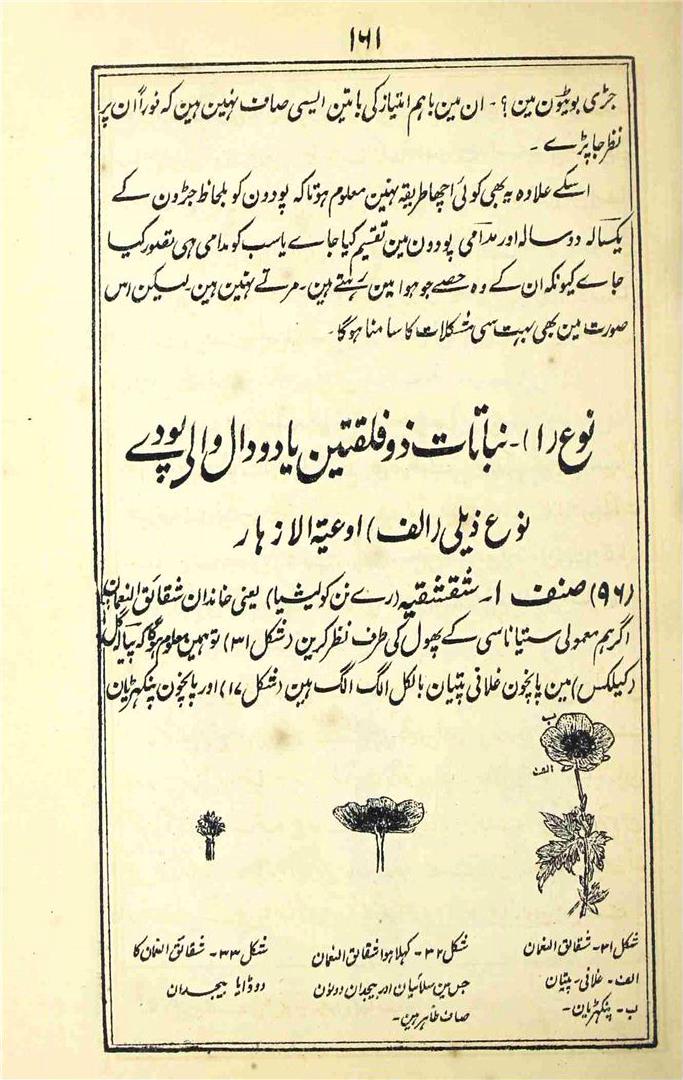 ۱۶۱
جڑی بوٹیون مین ؟ - ان مین باہم امتیاز کی باتین ایسی صاف نہین ہین کہ فوراً ان پر
نظر جا پڑے -
اسکے علاوہ یہ بھی کوئی اچھا طریقہ نہین معلوم ہوتا کہ پودون کو بلحاظ جڑون کے
یکسالہ دو سالہ اور مدامی پودون مین تقسیم کیا جاے یا سب کو مدامی ہی تصور کیا
جاے کیونکہ ان کے وہ حصے جو ہوا مین رہتے ہین - مرتے نہین ہین - لیکن اس
صورت مین بھی بہت سی مشکلات کا سامنا ہوگا -
نوع (۱) - نباتات ذو فلقتین یا دو دال والی پودے
نوع ذیلی (الف) اوعیۃ الازہار
(۹۶) صنف ۱ - شقشقیہ (رے نن کولیشیا) یعنی خاندان شقائق النعمان
اگر ہم معمولی ستیاناسی کے پھول کی طرف نظر کرین (شکل ۳۱) تو ہمین معلوم ہوگا کہ پیالہ گل
(کیلکس) مین پانچون غلافی پتیان بالکل الگ الگ ہین (شکل ۱۷) اور پانچون پنکھڑیان
ب
الف
شکل ۳۱ - شقائق النعمان
الف - غلافی - پتیان
ب - پنکھڑیان -
شکل ۳۲ - کھلا ہوا شقائق النعمان
جس مین سلائیان اور بیجدان دونون
صاف ظاہر ہین -
شکل ۳۳ - شقائق النعمان کا
دوڈا یا بیجدان